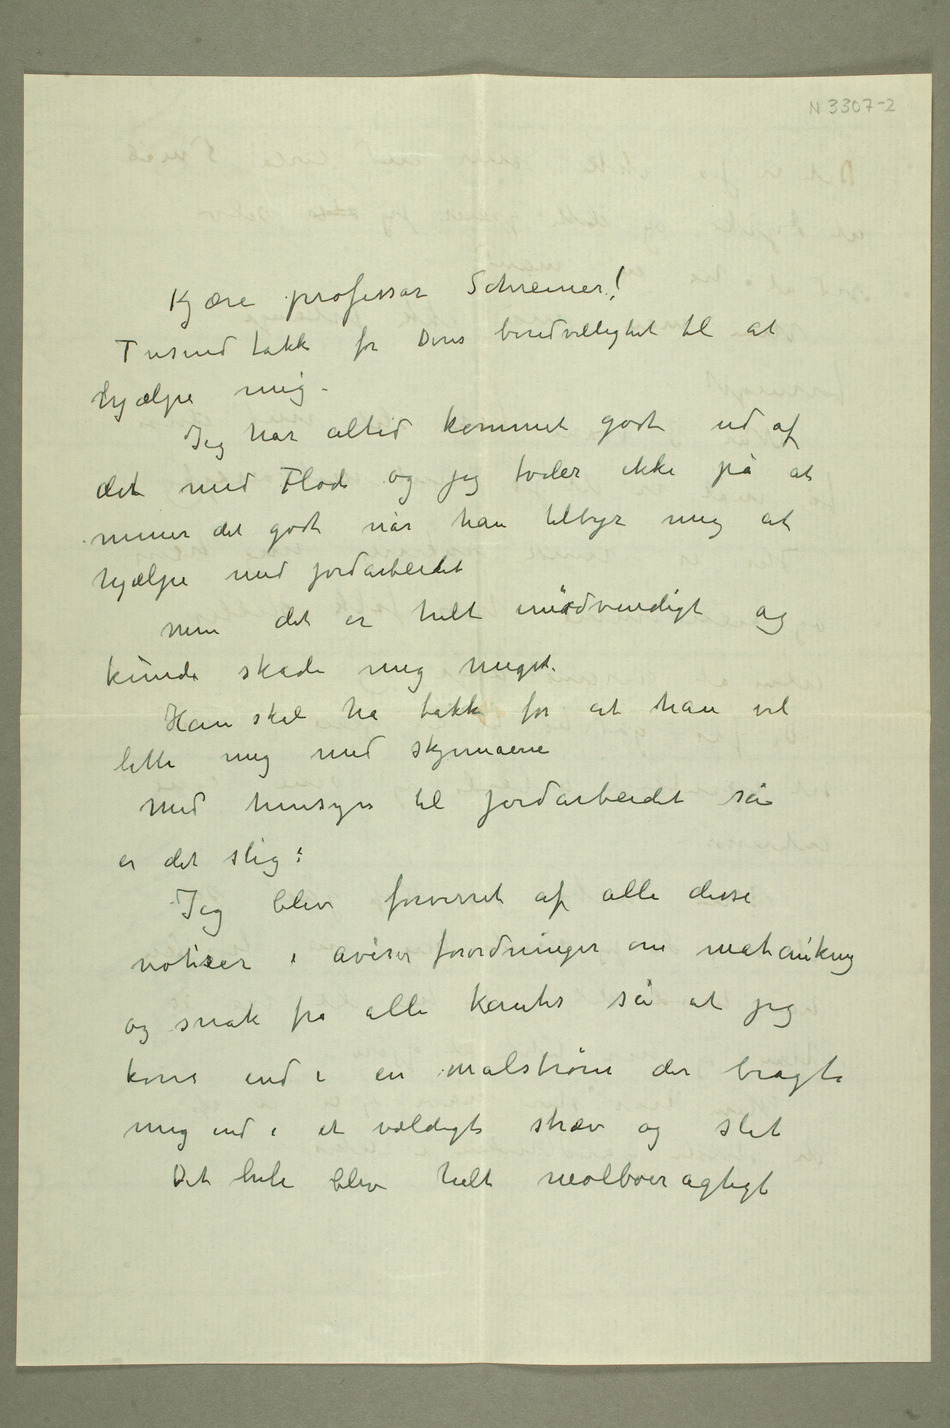 N 3307-2
Kjære professor Schreiner!
Tusind takk for Deres beredvillighet til at
hjælpe mig –
Jeg har altid kommet godt ud af
det med Flod og jeg tviler ikke på at
mener det godt når han tilbyr mig at
hjælpe med jordarbeidet
men det er helt unødvendigt og
kunde skade mig meget.
Han skal ha takk for at han vil
lette mig med skjemaene
Med hensyn til jordarbeidet så
er det slig:
Jeg blev forvirret af alle disse
notiser i aviser forordninger om matauking
og snak fra alle kanter så at jeg
kom ind i en malstrøm der bragte
mig ind i et vældigt stræv og slit
Det hele blev helt molboeragtigt